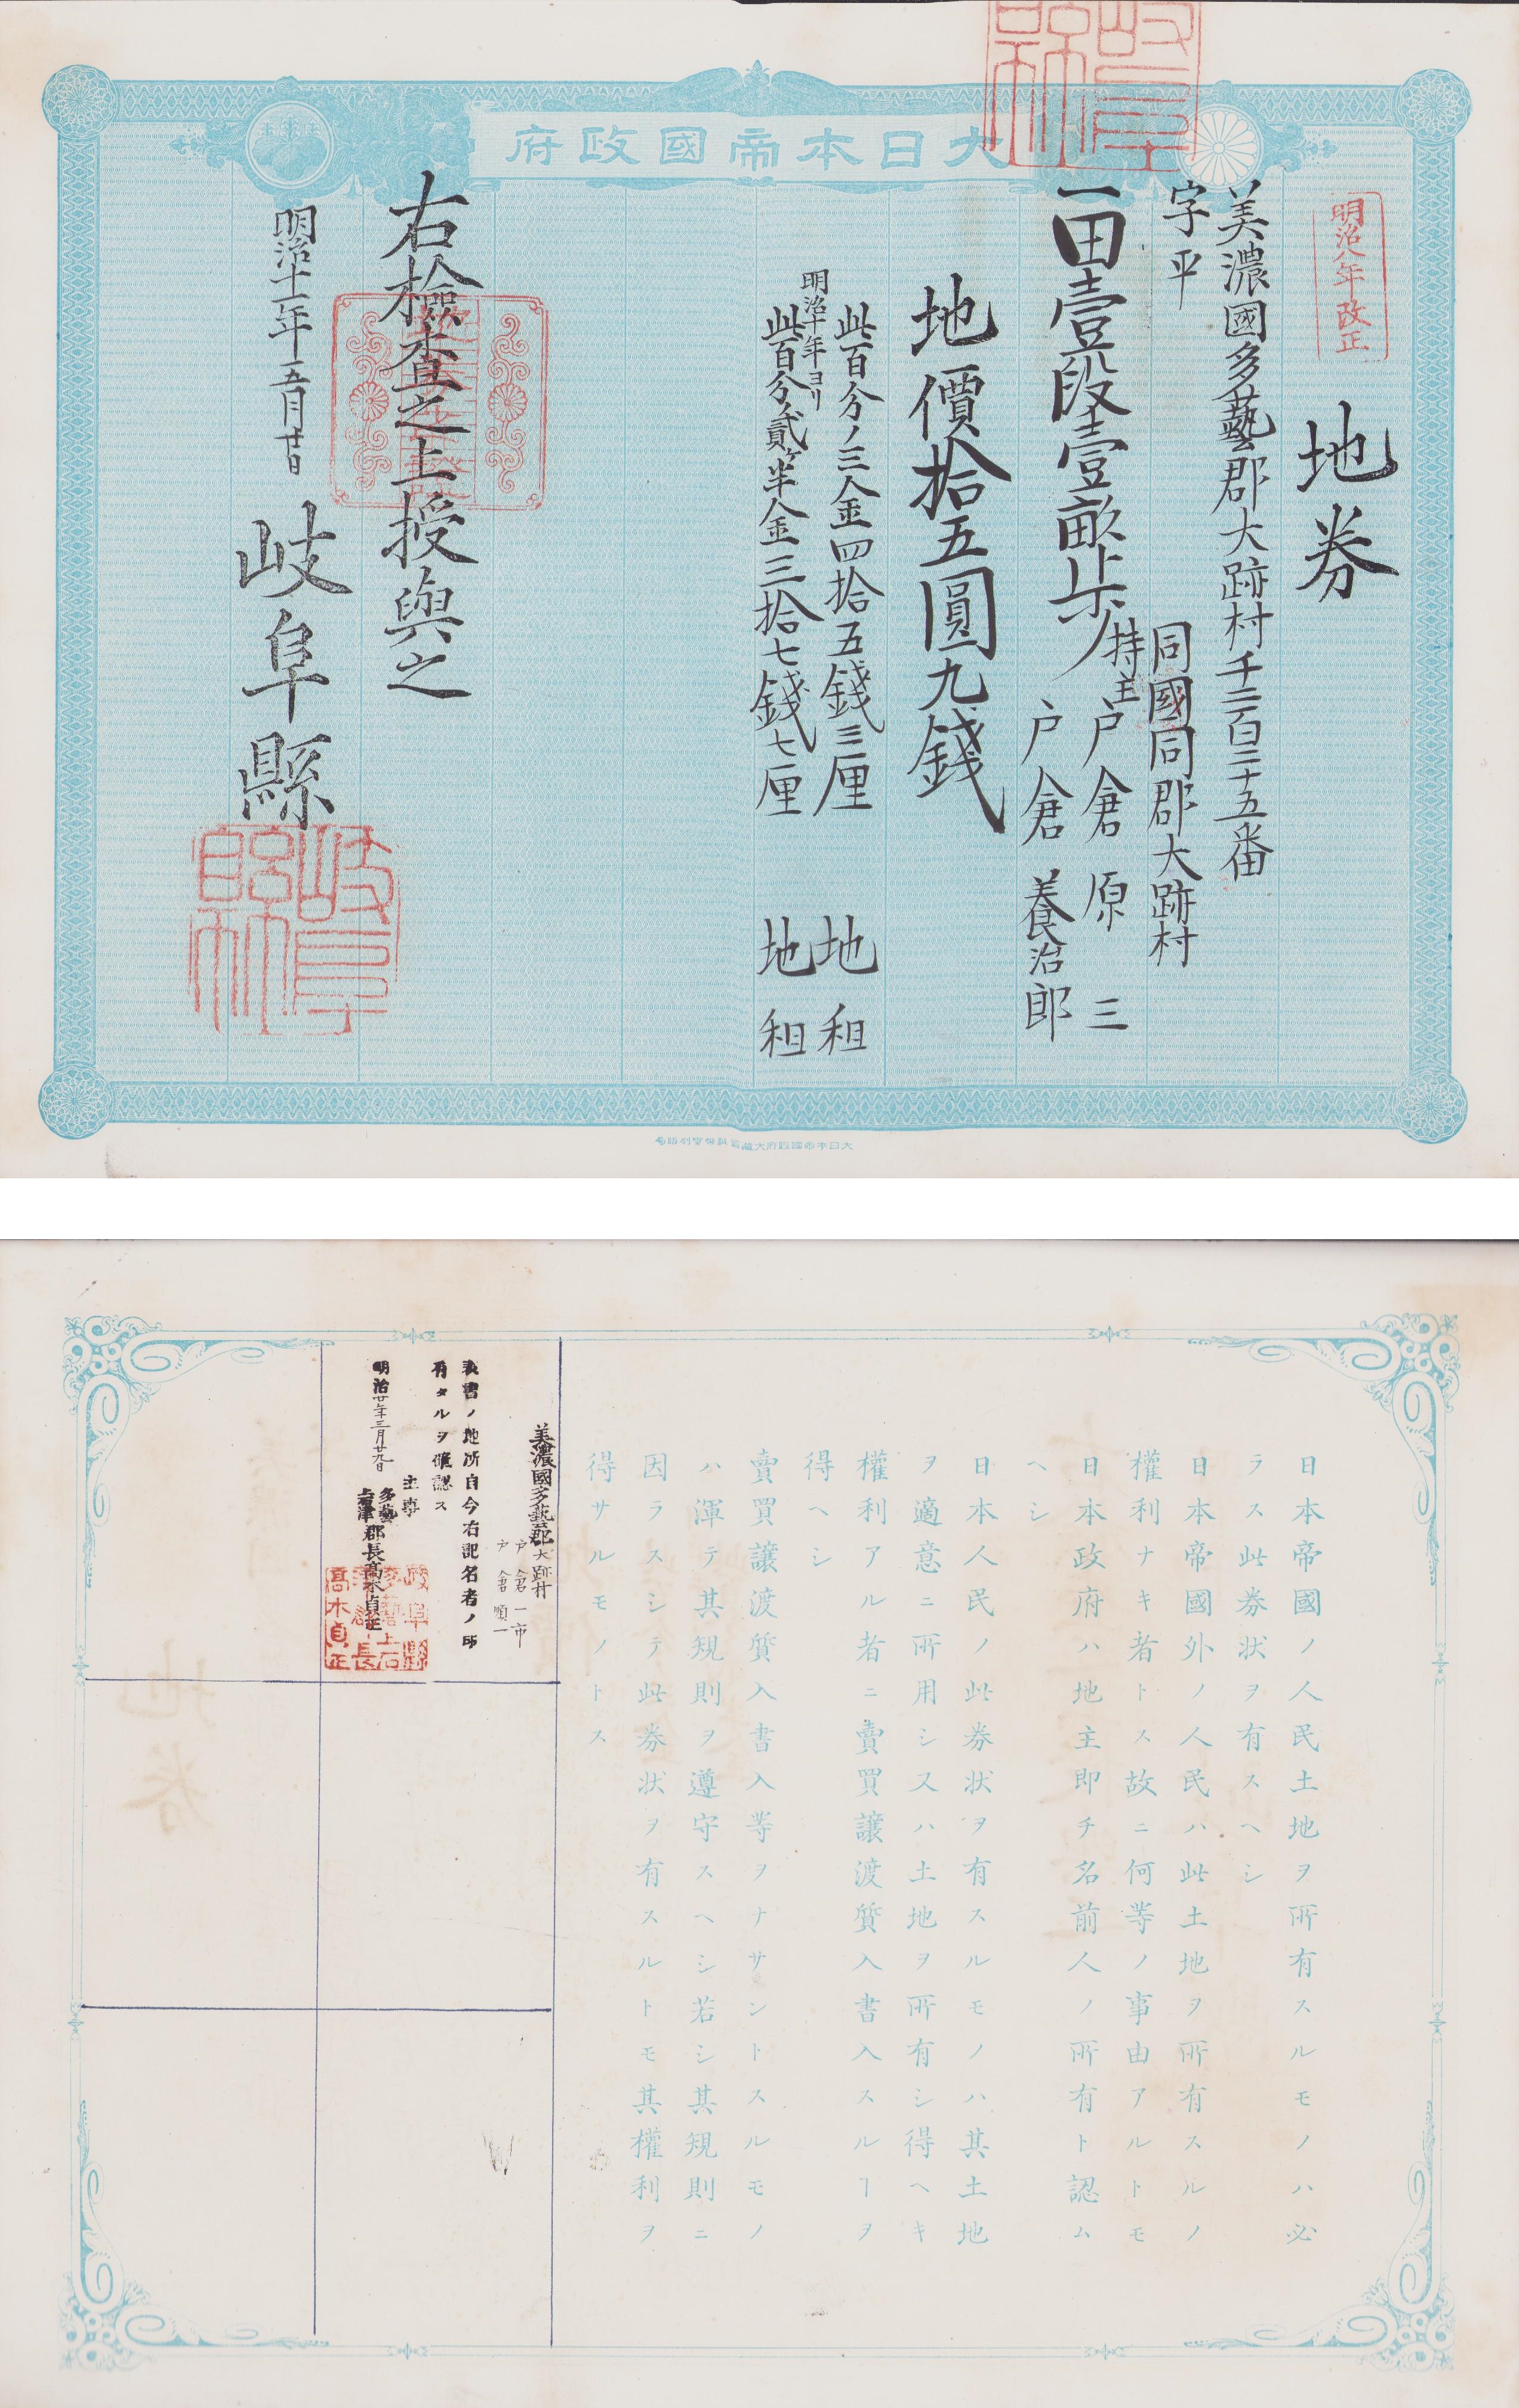 大日本帝國政府
明治八年改正
地券
美濃國多藝郡大跡村千二百二十五番
字平
同國同郡大跡村
一田壹段壹畝歩
持主戸倉原三
戸倉養治郎
地價拾五圓九錢
此百分ノ三金四拾五錢三厘 地租
明治十年ヨリ
此百分ノ貳ケ半金三拾七錢七厘 地租
右檢査之上授與之
明治十一年五月廿日
岐阜縣
岐阜縣
大日本帝國政府大蔵省
日本帝國ノ人民土地ヲ所有スルモノハ必
ラス此券状ヲ有スヘシ
日本帝國外ノ人民ハ此土地ヲ所有スルノ
權利ナキ者トス故ニ何等ノ事由アルトモ
日本政府ハ地主即チ名前人ノ所有ト認ム
ヘシ
日本人民ノ此券状ヲ有スルモノハ其土地
ヲ適意ニ所用シ又ハ土地ヲ所有シ得ヘキ
權利アル者ニ賣買譲渡質入書入スルヿヲ
得ヘシ
賣買譲渡質入書入等ヲナサントスルモノ
ハ渾テ其規則ヲ遵守スヘシ若シ其規則ニ
因ラスシテ此券状ヲ有スルトモ其權利ヲ
得サルモノトス
美濃國多藝郡大跡村
戸倉一市
戸倉順一
表書ノ地所自今右記名者ノ所
有タルヲ確認ス
主事
明治廿年三月廿九日
多藝上石津郡長髙木貞正
岐阜縣多藝上石津郡長髙木貞正